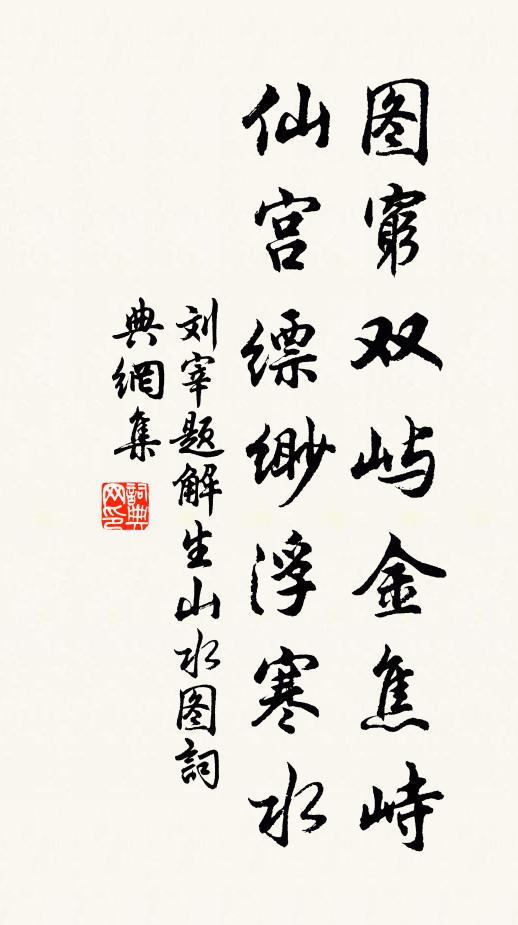 图穷双屿金焦峙
仙宫缥缈浮寒水
刘宰题解生山水图詞
典網集
詞典网印